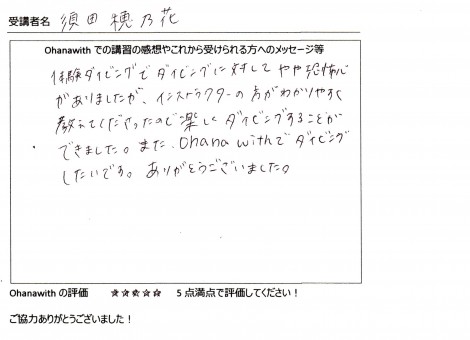 受講者名 須田穂乃花
Ohanawith での講習の感想やこれから受けられる方へのメッセージ等
体験ダイビングでダイビングに対してやや恐怖心
がありましたが、インストラクターの方がわかりやすく
教えてくださったので楽しくダイビングすることが
できました。また、Ohana withでダイビング
したいです。ありがとうございました。
Ohanawith の評価 ★★★★★ 5 点満点で評価してください!
ご協力ありがとうございました!